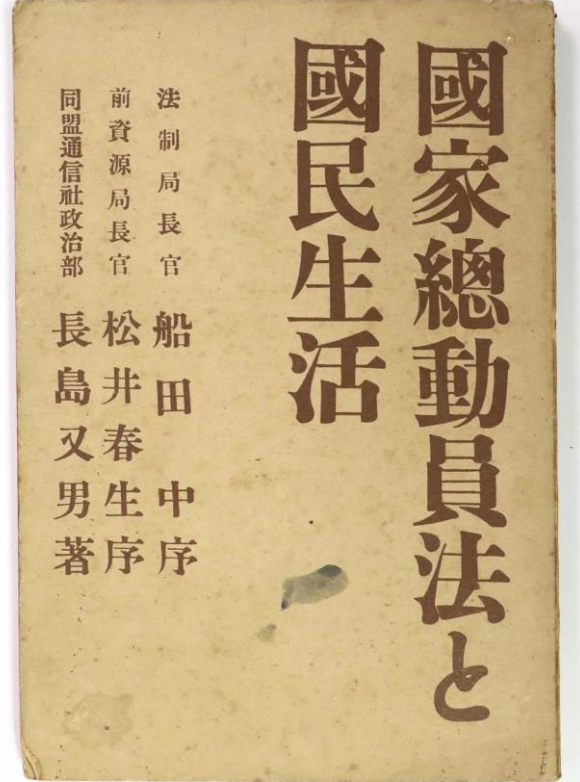 國家總動員法と
國民生活
法制局長官 船田 中序
前資源局長官 松井春生序
同盟通信社政治部 長島又男著